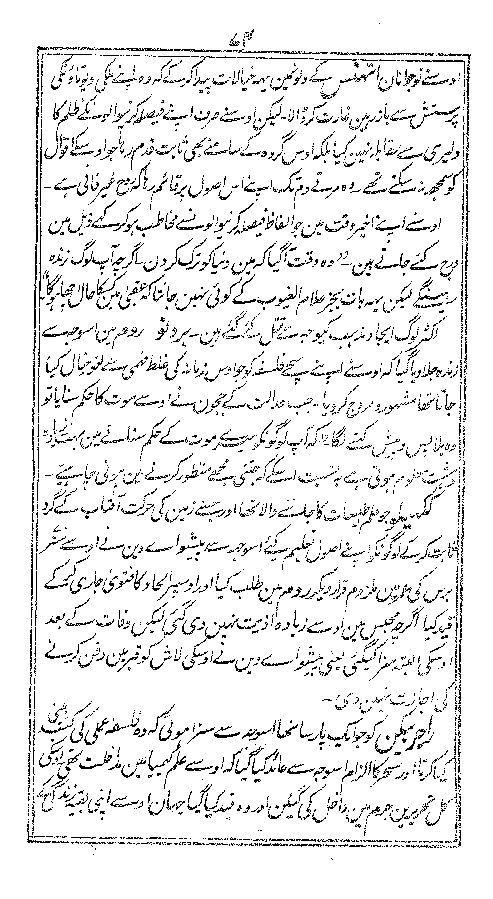 ۷۳
اوسنے نوجوانان اتھنس کے دلونمین یہہ خیالات پیدا کر سکے کہ وہ اپنے ملکی دیوتاؤنکی
پرستش سے باز رہین غارت کر ڈالا۔ لیکن اوسنے صرف اپنے فیصلہ کرنیوالونکے ظلم کا
دلیری سے مقابلہ نہین کیا بلکہ اوس گروہ کے سامنے بھی ثابت قدم رہا جو اوسکے اقوال
کو سمجھ نہ سکتے تھے وہ مرتے دم تک اپنے اس اصول پر قائم رہا کہ روح غیر فانی ہے۔
اوسنے اپنے اخیر وقت مین جو الفاظ فیصلہ کرنیوالونسے مخاطب ہو کر کہے ذیل مین
درج کئے جاتے ہین۔ "وہ وقت آگیا کہ مین دنیا کو ترک کردن۔ اگرچہ آپ لوگ زندہ
رہینگے لیکن یہہ بات بجز علام الغیوب کے کوئی نہین جانتا کہ عقبیٰ مین کسکا حال اچھا ہوگا"
اکثر لوگ ایجاد مذہب کیوجہ سے قتل کئے گئے ہین۔ برونو روم مین اسوجہ سے
زندہ جلا دیا گیا کہ اوسنے اپنے سچے فلسفہ کو جو اوس زمانہ کی غلط فہمی سے لغو خیال کیا
جاتا تھا مشہور و مروج کردیا۔ جب عدالت کے ججون نے اوسے موت کا حکم سنایا تو
وہ بلا پس و پیش کہنے لگا "کہ آپ لوگونکو میرے موت کے حکم سنانے مین بہت زیادہ
دہشت معلوم ہوتی ہے بہ نسبت اسکے کہ جتنی مجھے منظور کرنے مین ہونی چاہیے۔
گلیلیو جو علم طبیعات کا جاننے والا تھا اور جسنے زمین کی حرکت آفتاب کے گرد
ثابت کر کے لوگونکو اپنے اصول تعلیم کئے اسوجہ سے پیشوائے دین نے اوسے ستر
برس کی عمر مین ملزم قرار دیکر روم مین طلب کیا اور اوسپر الحاد کا فتویٰ جاری کر کے
قید کیا اگرچہ مجلس مین اوسے زیادہ اذیت نہین دی گئی لیکن وفات کے بعد
اوسکی البتہ سزا کیگئی یعنی پیشوائے دین نے اوسکی لاش کو قبر مین دفن کرنے
کی اجازت نہین دی۔
راجر بیکن کو جو ایک پارسا تھا اسوجہ سے سزا ہوئی کہ وہ فلسفہ عملی کی کتب بینی
کیا کرتا اور سحر کا الزام اسوجہ سے عائد کیا گیا کہ اوسے علم کیمیا مین مداخلت تھی اوسکی
کل تحریرین جرم مین داخل کی گئین اور وہ قید کیا گیا جہان اوسے اپنی بقیہ زندگی کے